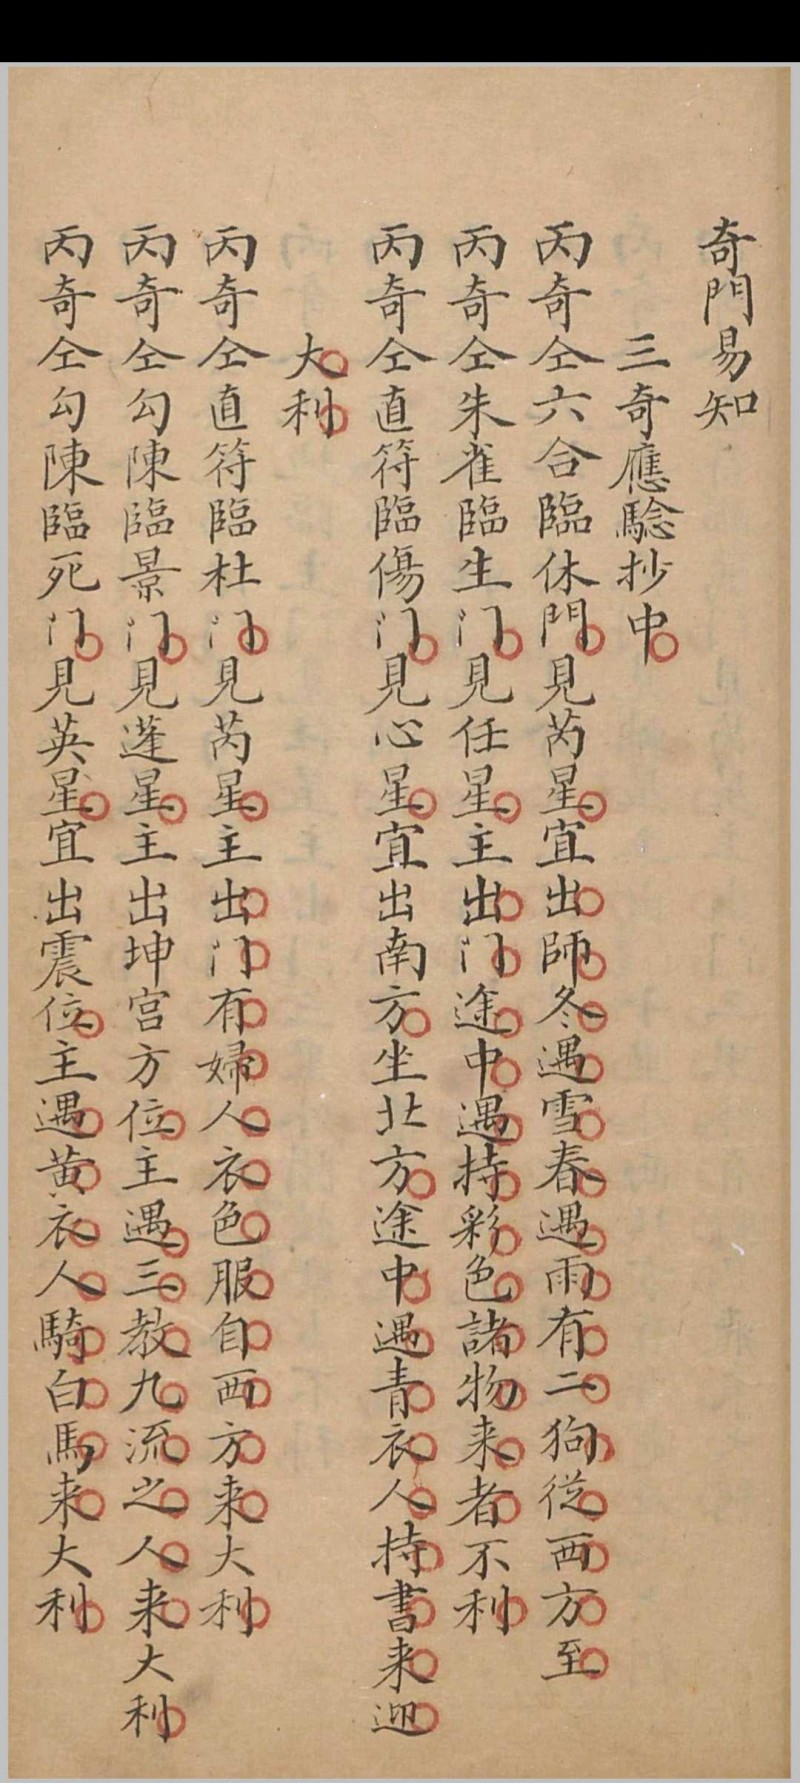 奇門易知
三奇應驗抄中
丙奇仝六合臨休門見芮星宜出師冬遇雪春遇雨有二狗從西方至
丙奇仝朱雀臨生门見任星主出门途中遇持彩色諸物来者不利
丙奇仝直符臨傷门見心星宜出南方坐北方途中遇青衣人持書来迎
大利
丙奇仝直符臨杜门見芮星主出门有婦人衣色服自西方来大利
丙奇仝勾陳臨景门見蓬星主出坤宫方位主遇三教九流之人来大利
丙奇仝勾陳臨死门見英星宜出震位主遇黄衣人騎白馬来大利